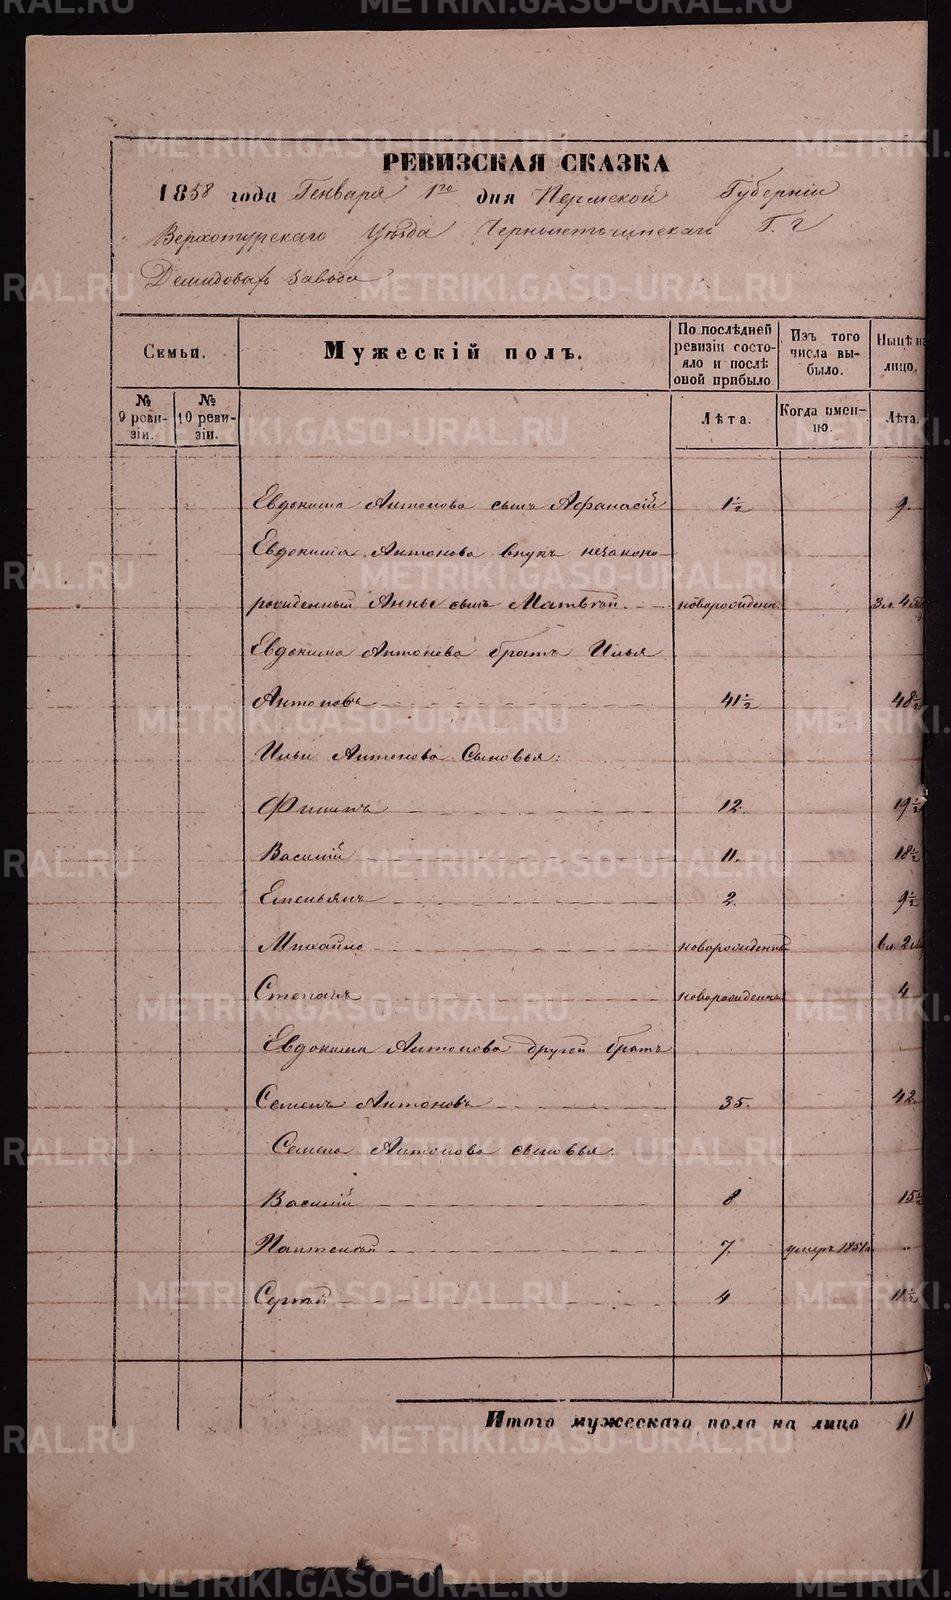 РЕВИЗСКАЯ СКАЗКА
1858 года Генваря 1го дня Пермской Губерніи
Верхотурскаго Уѣзда Черноисточинскаго Г. г
Демидовыхъ завода
Семьи.
Мужескій полъ.
По послѣдней ревизіи состояло и послѣ оной прибыло
Изъ того числа выбыло.
Нынѣ на лицо.
№ 9 ревизіи.
№ 10 ревизіи.
Лѣта.
Когда именно.
Лѣта.
Евдокима Антонова сынъ Афанасій 1½ 9
Евдокима Антонова внукъ незаконо
рожденный Анны сынъ Матвѣй. новорожден. 3 л. 4
Евдокима Антонова братъ Илья
Антоновъ 41½ 48½
Ильи Антонова Сыновья:
Филипъ 12. 19½
Василій 11. 18½
Емельянъ 2. 9½
Михайло новорожденный 6 л. 2
Степанъ новорожденный 4
Евдокима Антонова другой братъ
Семенъ Антоновъ 35. 42.
Семена Антонова сыновья:
Василій 8 15½
Пантелей 7. умеръ 1851г.
Сергѣй 4 11½
Итого мужескаго пола на лицо 11
METRIKI.GASO-URAL.RU